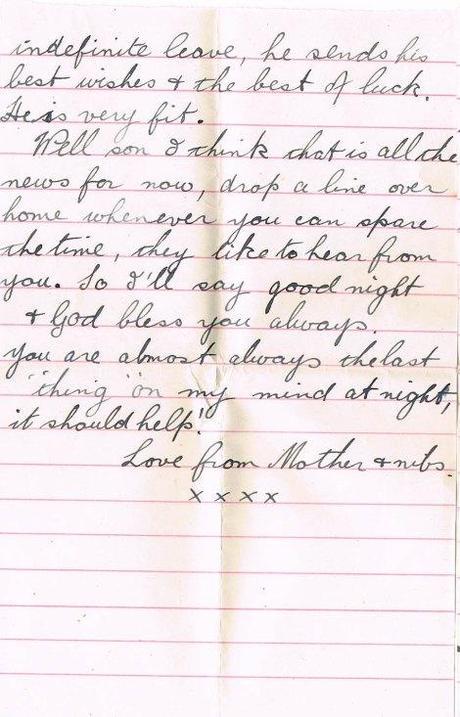 indefinite leave, he sends his
best wishes & the best of luck.
He is very fit.
Well son I think that is all the
news for now, drop a line over
home whenever you can spare
the time, they like to hear from
you. So I'll say good night
& God bless you always.
You are almost always the last
"thing" on my mind at night,
it should help!
Love from Mother & nibs.
x x x x